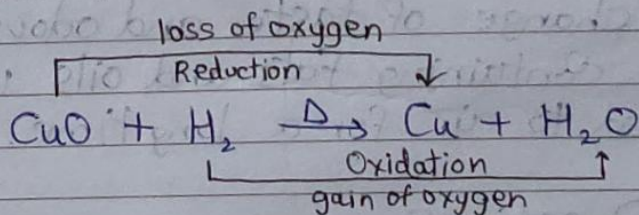 loss of oxygen
Reduction
CuO + H₂ —Δ→ Cu + H₂O
Oxidation
gain of oxygen